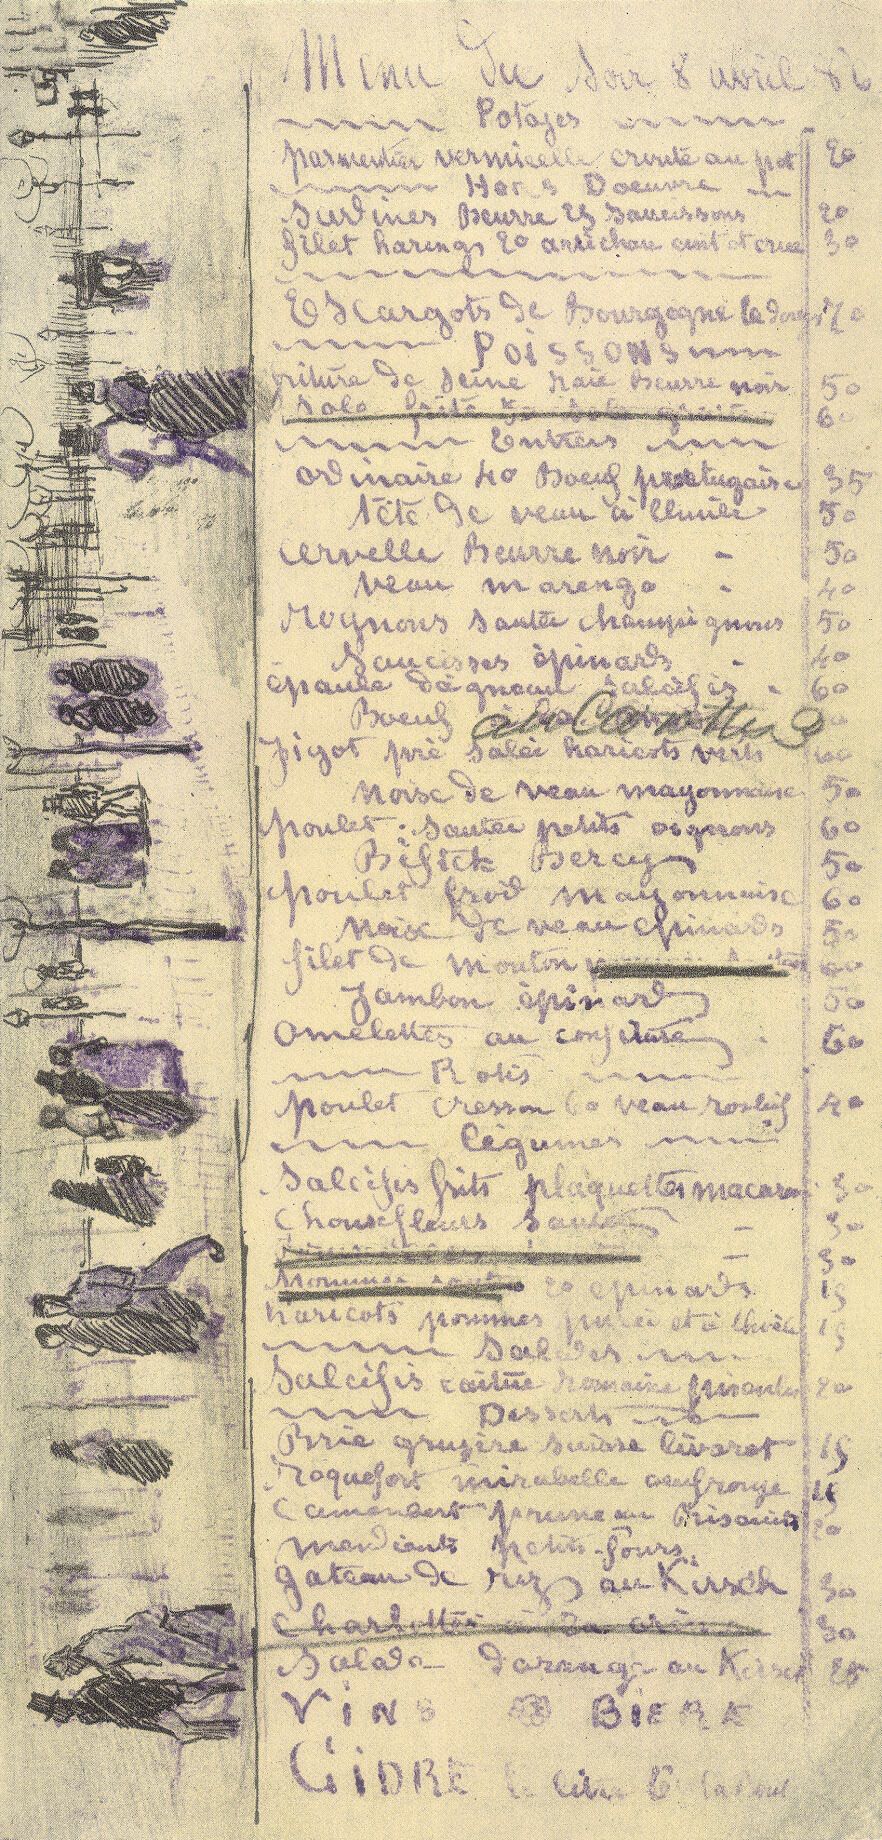 Menu du Soir 8 avril 86
Potages
parmentier vermicelle croute au pot 20
Hors Doeuvre
Sardines Beurre 25 Saucissons 20
filet harengs 20 artichau cuit et crue 30
Escargots de Bourgogne la douz 70
POISSONS
friture de Seine raie Beurre noir 50
60
Entrées
ordinaire 40 Boeuf portugaise 35
tête de veau à l'huile 50
cervelle Beurre noir - 50
veau marengo - 40
Rognons sautée champignons 50
Saucisses épinards - 40
épaule dagneau Salcifis - 60
Boeuf
Jigot pré salée haricots verts 60
Noise de veau mayonnaise 50
poulet sautée petits oignons 60
Bifteck Bercy 50
poulet froid mayonnaise 60
Noix de veau épinards 50
filet de mouton 60
Jambon épinard 50
Omelettes au confiture - 60
Rotis
poulet cresson 60 veau rosbif 40
légumes
Salcifis frits macaroni 30
Chousfleurs Sautés - 30
- 30
20 épinards 15
haricots pommes purée et à lhuile 15
Salades
Salcifis laitue Romaine pissenlis 20
Desserts
Brie gruyère suisse livarot 15
Roquefort mirabelle 15
Camembert pruneau Biscuits 20
mendiants petits-fours
Gateau de riz au Kirsch 30
30
Salade Dorange au Kirsch 25
VINS BIERE
CIDRE le litre